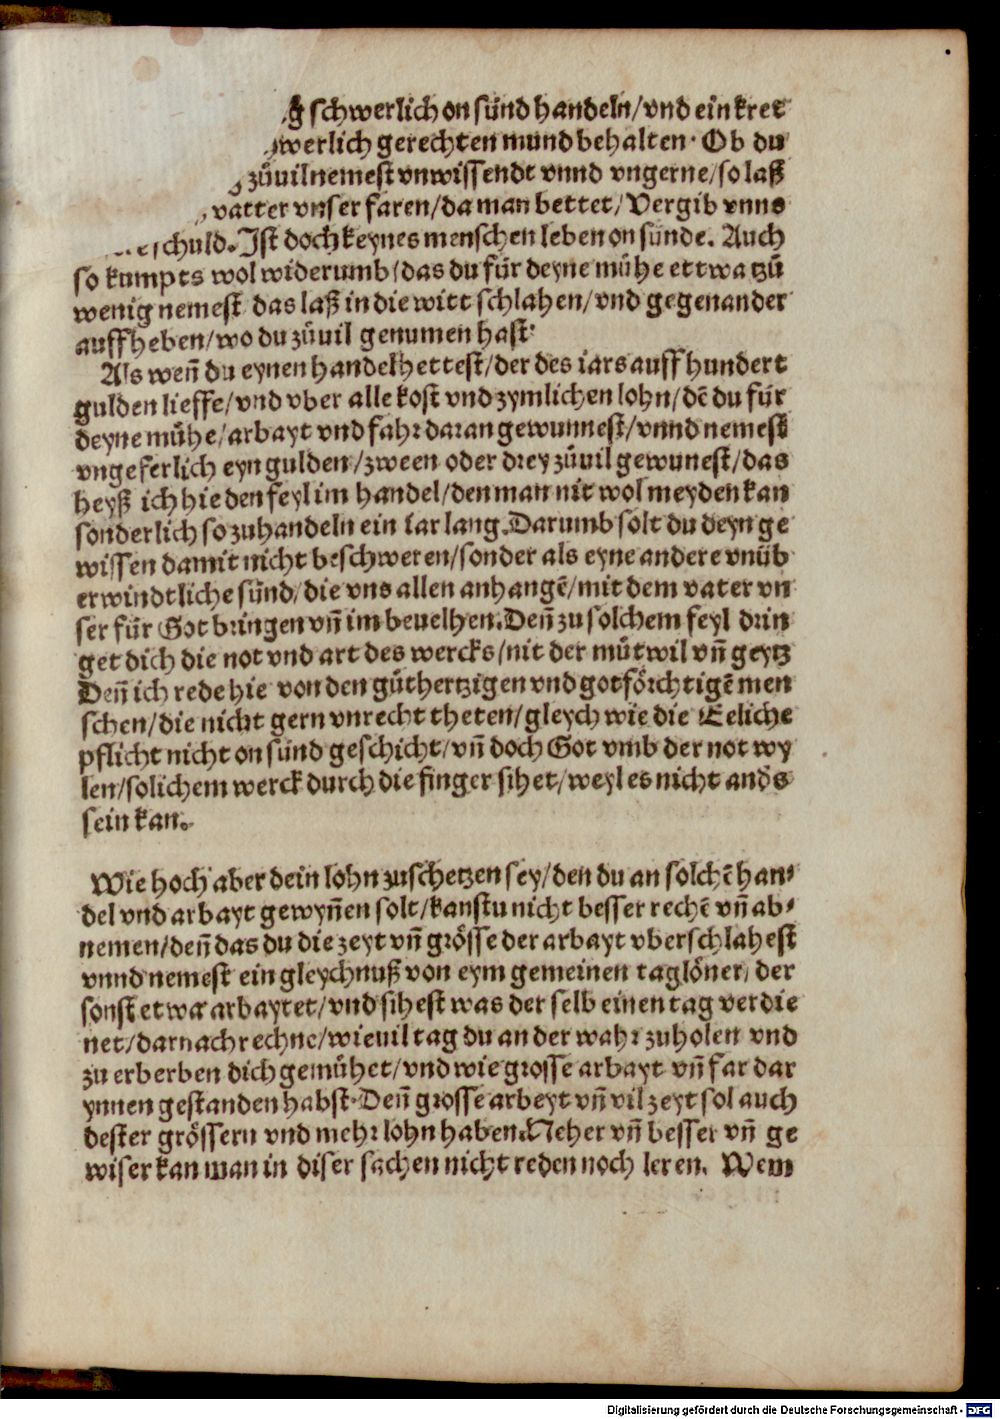 schwerlich on sünd handeln/vnd ein kret
werlich gerechten mund behalten· Ob du
zůuil nemest vnwissendt vnnd vngerne/so laß
vatter vnser faren/da man bettet/Vergib vnns
schuld. Ist doch keynes menschen leben on sünde. Auch
so kumpts wol widerumb/das du für deyne mühe ettwa tzů
wenig nemest das laß in die witt schlahen/vnd gegenander
auffheben/wo du zůuil genumen hast·
Als weñ du eynen handel hettest/der des iars auff hundert
gulden lieffe/vnd vber alle kost vnd zymlichen lohn/dē du für
deyne mühe/arbayt vnd fahr daran gewunnest/vnnd nemest
vngeferlich eyn gulden/zween oder drey zůuil gewunest/das
heyß ich hie den feyl im handel/den man nit wol meyden kan
sonderlich so zuhandeln ein iar lang. Darumb solt du deyn ge
wissen damit nicht beschweren/sonder als eyne andere vnüb
erwindtliche sünd/die vns allen anhangē/mit dem vater vn
ser für Got bringen vñ im beuelhen. Deñ zu solchem feyl drin
get dich die not vnd art des wercks/nit der můtwil vñ geytz
Deñ ich rede hie von den gůthertzigen vnd gotförchtigē men
schen/die nicht gern vnrecht theten/gleych wie die Eeliche
pflicht nicht on sünd geschicht/vñ doch Got vmb der not wy
len/solichem werck durch die finger sihet/weyl es nicht and's
sein kan.
Wie hoch aber dein lohn zuschetzen sey/den du an solchē han-
del vnd arbayt gewyñen solt/kanstu nicht besser rechē vñ ab-
nemen/deñ das du die zeyt vñ grösse der arbayt vberschlahest
vnnd nemest ein gleychnuß von eym gemeinen taglöner/der
sonst etwa arbaytet/vnd sihest was der selb einen tag verdie
net/darnach rechne/wieuil tag du an der wahr zuholen vnd
zu erberben dich gemühet/vnd wie grosse arbayt vñ far dar
ynnen gestanden habst· Deñ grosse arbeyt vñ vil zeyt sol auch
dester grössern vnd mehr lohn haben. Neher vñ besser vñ ge
wiser kan man in diser sachen nicht reden noch leren. Wem
Digitalisierung gefördert durch die Deutsche Forschungsgemeinschaft - DFG